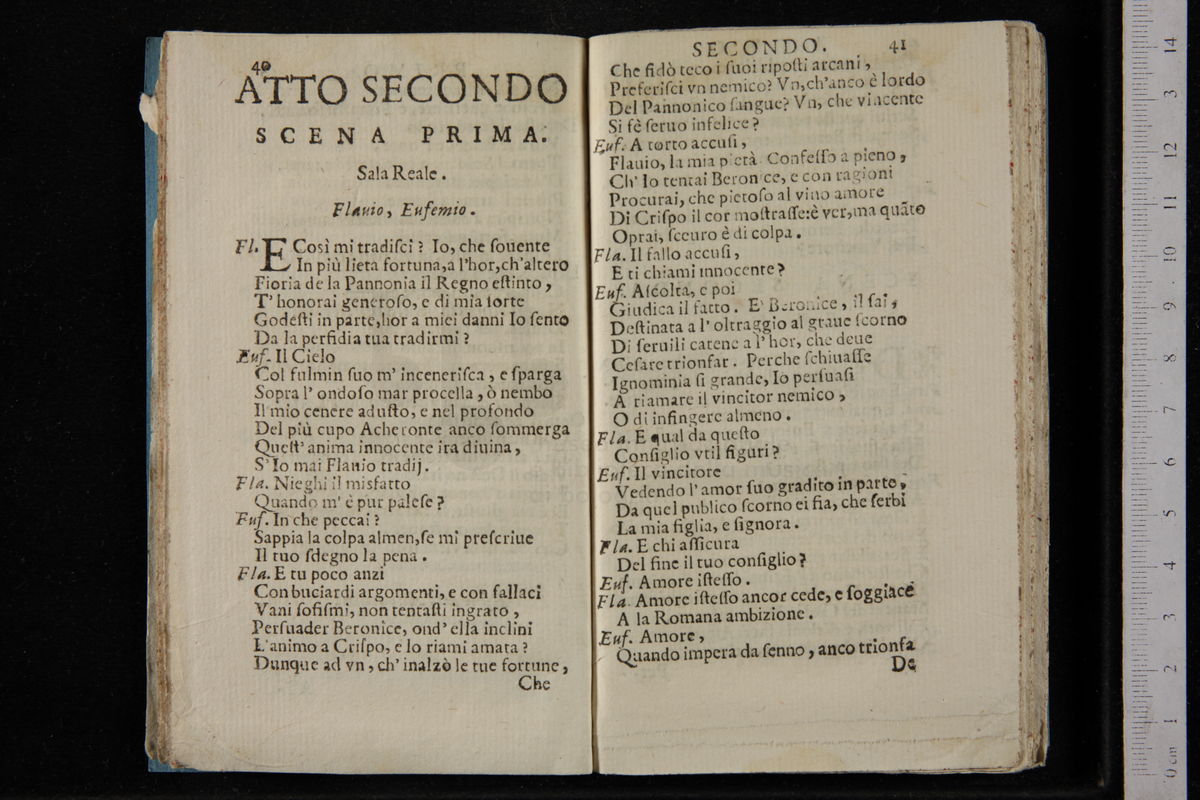 40
ATTO SECONDO
SCENA PRIMA.
Sala Reale.
Flauio, Eufemio.
Fl. E Così mi tradiſci? Io, che ſouente
In più lieta fortuna, a l'hor, ch'altero
Fioria de la Pannonia il Regno eſtinto,
T' honorai generoſo, e di mia ſorte
Godeſti in parte, hor a miei danni Io ſento
Da la perfidia tua tradirmi?
Euf. Il Cielo
Col fulmin ſuo m' inceneriſca, e ſparga
Sopra l' ondoſo mar procella, ò nembo
Il mio cenere aduſto, e nel profondo
Del più cupo Acheronte anco ſommerga
Queſt' anima innocente ira diuina,
S' Io mai Flauio tradij.
Fla. Nieghi il misfatto
Quando m' è pur paleſe?
Euf. In che peccai?
Sappia la colpa almen, ſe mi preſcriue
Il tuo ſdegno la pena.
Fla. E tu poco anzi
Con buciardi argomenti, e con fallaci
Vani ſofiſmi, non tentaſti ingrato,
Perſuader Beronice, ond' ella inclini
L'animo a Criſpo, e lo riami amata?
Dunque ad vn, ch' inalzò le tue fortune,
Che
SECONDO. 41
Che fidò teco i ſuoi ripoſti arcani,
Preferiſci vn nemico? Vn, ch'anco è lordo
Del Pannonico ſangue? Vn, che vincente
Si fè ſeruo infelice?
Euf. A torto accuſi,
Flauio, la mia pietà. Confeſſo a pieno,
Ch' Io tentai Beronice, e con ragioni
Procurai, che pietoſo al viuo amore
Di Criſpo il cor moſtraſſe: è ver, ma quãto
Oprai, ſecuro è di colpa.
Fla. Il fallo accuſi,
E ti chiami innocente?
Euf. Aſcolta, e poi
Giudica il fatto. E' Beronice, il ſai,
Deſtinata a l' oltraggio al graue ſcorno
Di ſeruili catene a l' hor, che deue
Ceſare trionfar. Perche ſchiuaſſe
Ignominia ſi grande, Io perſuaſi
A riamare il vincitor nemico,
O di infingere almeno.
Fla. E qual da queſto
Conſiglio vtil figuri?
Euf. Il vincitore
Vedendo l' amor ſuo gradito in parte,
Da quel publico ſcorno ei fia, che ſerbi
La mia figlia, e ſignora.
Fla. E chi aſſicura
Del fine il tuo conſiglio?
Euf. Amore iſteſſo.
Fla. Amore iſteſſo ancor cede, e ſoggiace
A la Romana ambizione.
Euf. Amore,
Quando impera da ſenno, anco trionfa
De
14
13
12
11
10
9
8
7
6
5
4
3
2
1
0 cm